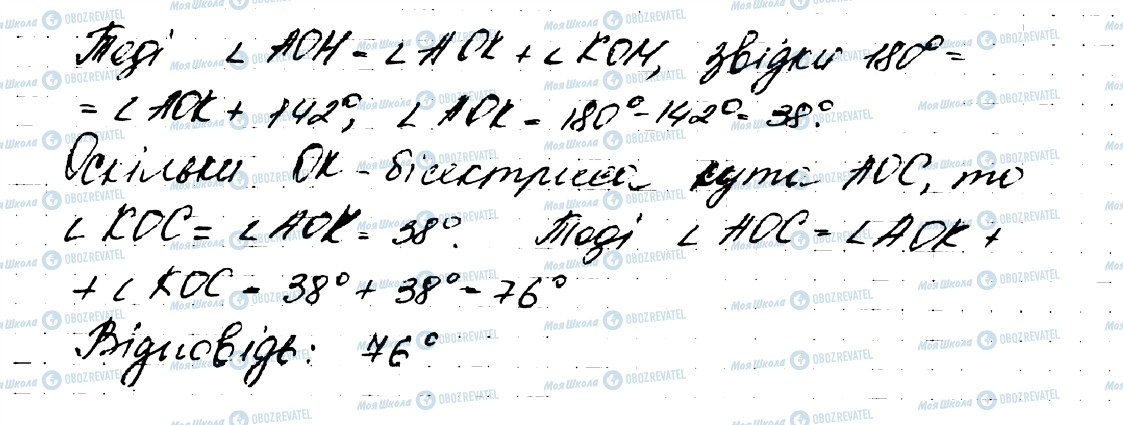 Тоді ∠ AOH = ∠ AOK + ∠ KOH, звідки 180° =
= ∠ AOK + 142°; ∠ AOK = 180° - 142° = 38°.
Оскільки OK - бісектриса кута AOC, то
∠ KOC = ∠ AOK = 38°. Тоді ∠ AOC = ∠ AOK +
+ ∠ KOC = 38° + 38° = 76°
Відповідь: 76°